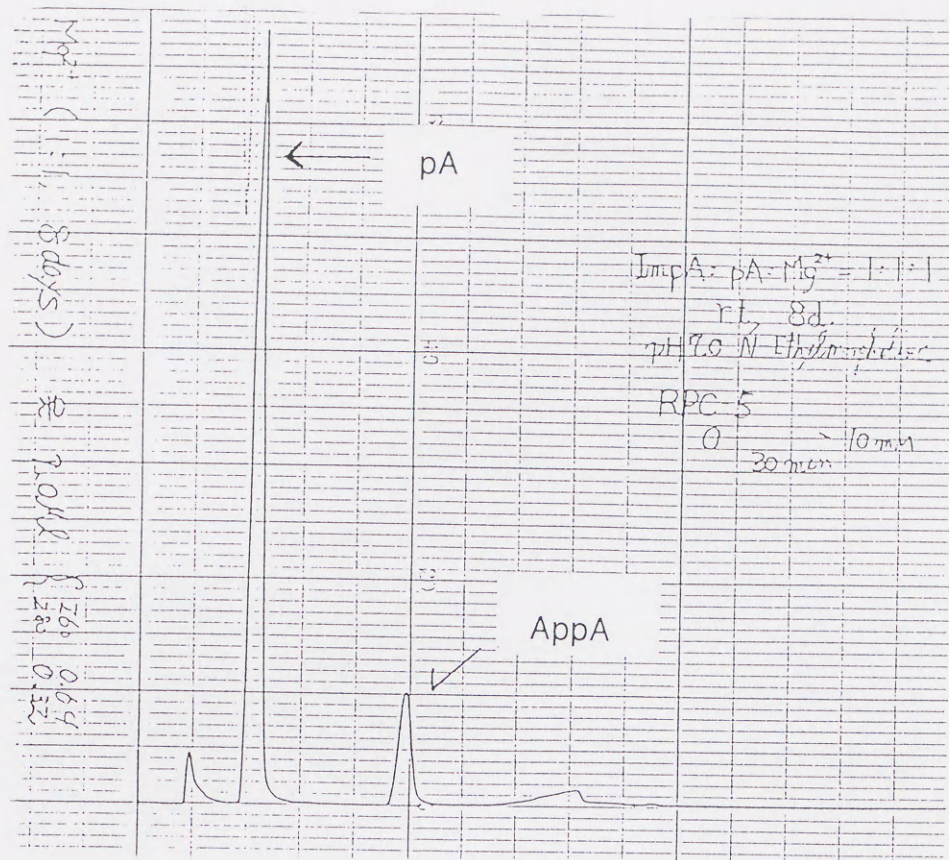 Mg²⁺ (1:1, 8 days)
2.0μl
260 0.64
280 0.32
pA
ImpA:pA:Mg²⁺=1:1:1
rt, 8d.
pH 7.0 N-Ethylmorpholine
RPC-5
0 10min
30min
AppA